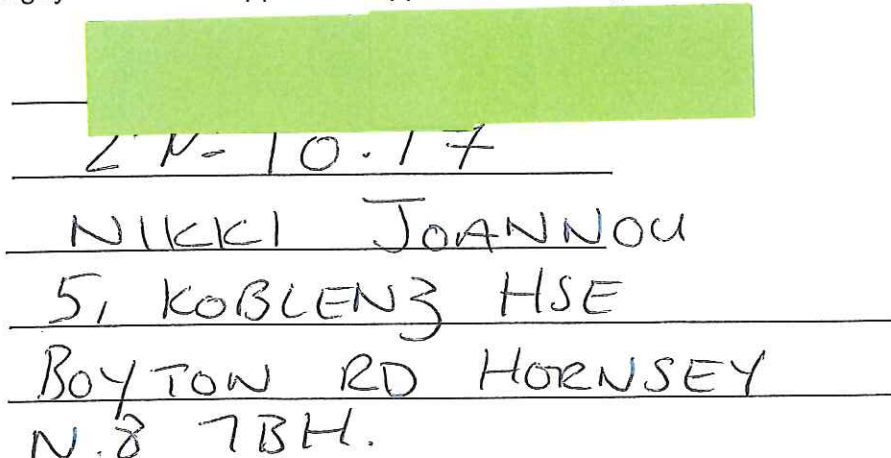 10.17
NIKKI JOANNOU
5, KOBLENZ HSE
BOYTON RD HORNSEY
N.8 7BH.